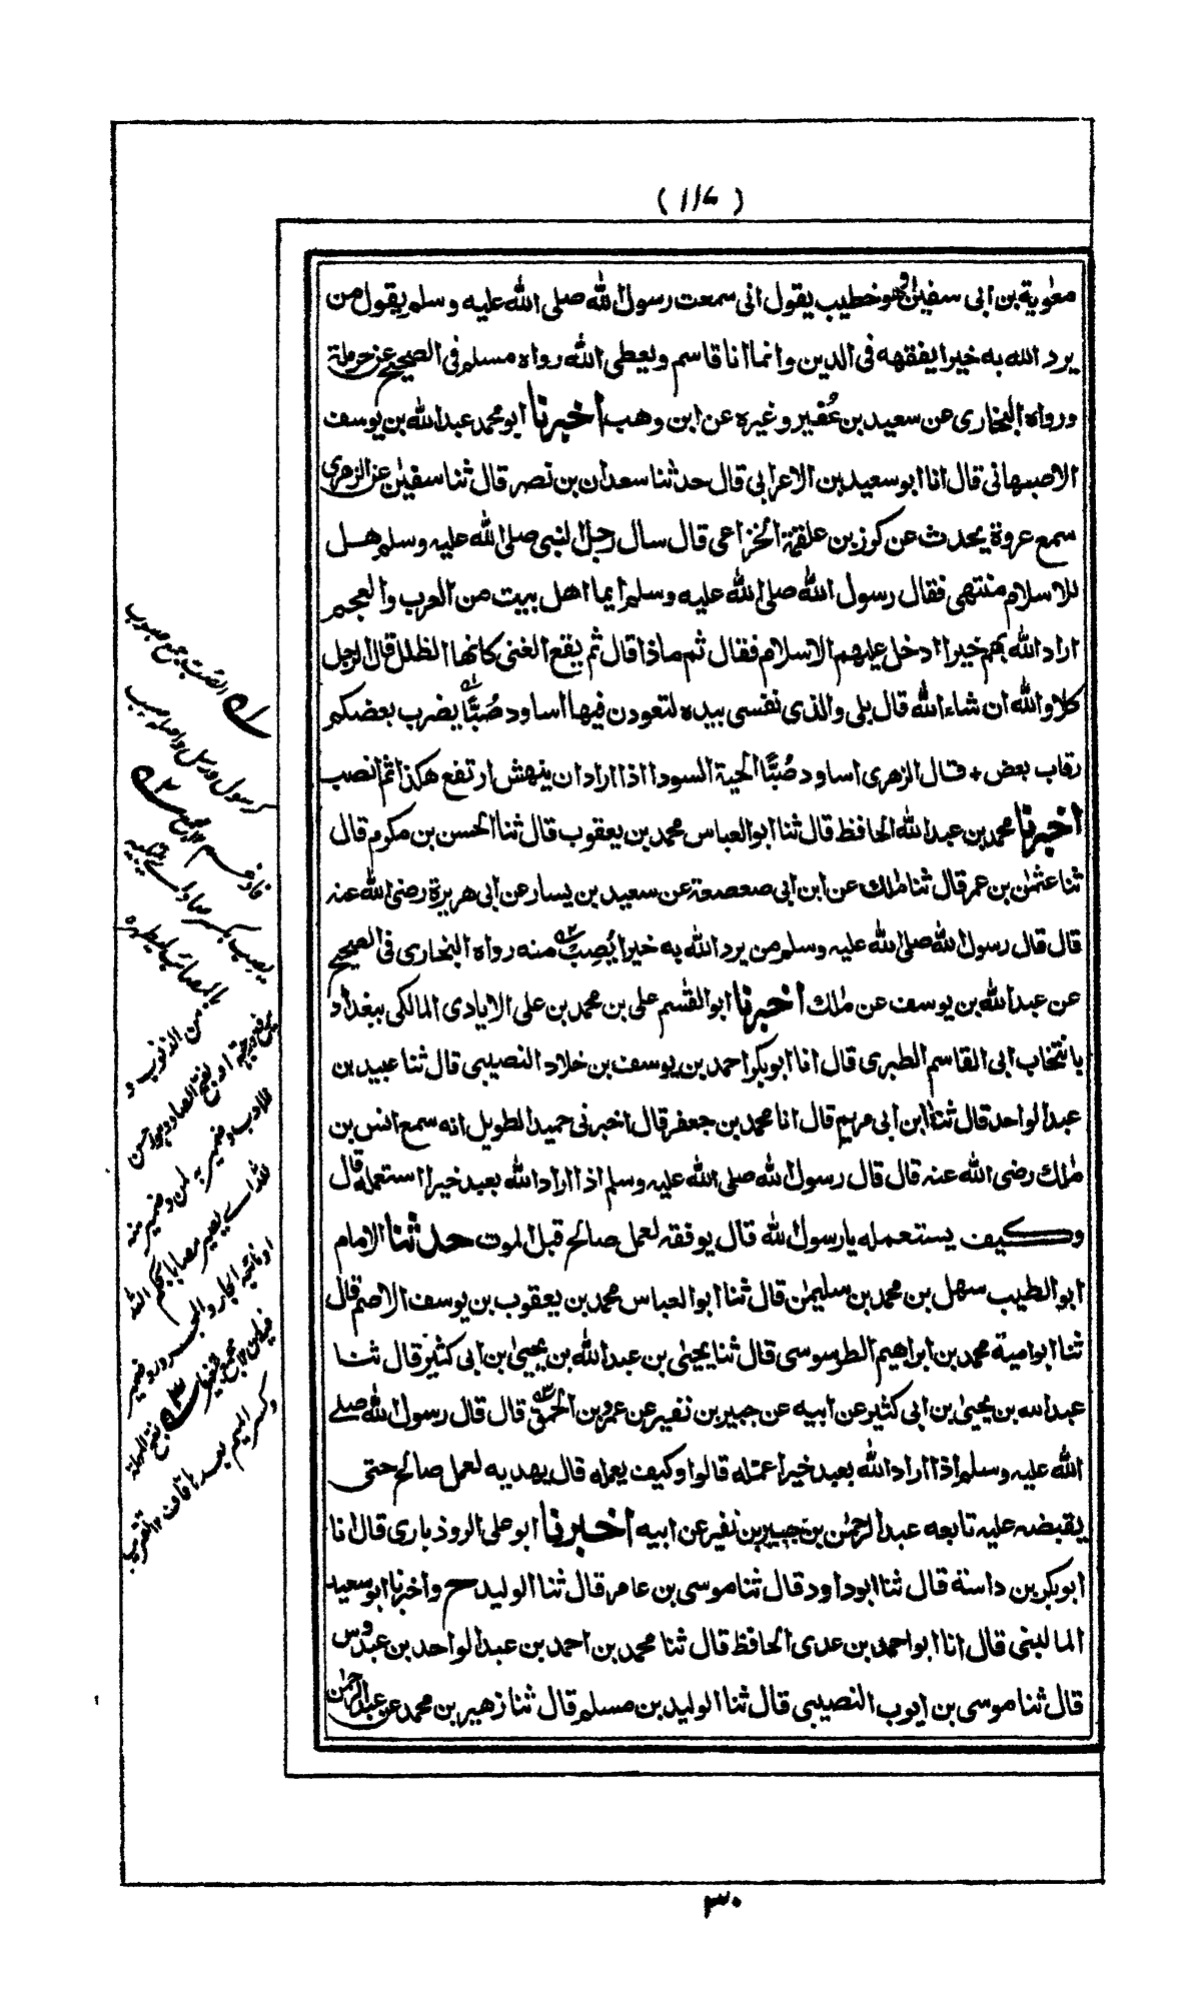 (١١٧)
معوية بن ابى سفين وهو خطيب يقول انى سمعت رسول الله صلى الله عليه وسلم يقول من
يرد الله به خيرا يفقهه فى الدين وانما انا قاسم ويعطى الله رواه مسلم فى الصحيح عن حرملة
ورواه البخارى عن سعيد بن عُفير وغيره عن ابن وهب اخبرنا ابو محمد عبد الله بن يوسف
الاصبهانى قال انا ابو سعيد بن الاعرابى قال حدثنا سعدان بن نصر قال ثنا سفين عن الزهرى
سمع عروة يحدث عن كوز بن علقمة الخزاعى قال سال رجل النبى صلى الله عليه وسلم هل
للاسلام منتهى فقال رسول الله صلى الله عليه وسلم ايما اهل بيت من العرب والعجم
اراد الله بهم خيرا ادخل عليهم الاسلام فقال ثم ماذا قال ثم يقع الغنى كانها الظلل قال الرجل
كلا والله ان شاء الله قال بلى والذى نفسى بيده لتعودن فيها اساود صُبًّا يضرب بعضكم
رقاب بعض + قال الزهرى اساود صُبًّا الحية السودا اذا اراد ان ينهش ارتفع هكذا ثم انصب
اخبرنا محمد بن عبد الله الحافظ قال ثنا ابو العباس محمد بن يعقوب قال ثنا الحسن بن مكرم قال
ثنا عثمن بن عمر قال ثنا ملك عن ابن ابى صعصعة عن سعيد بن يسار عن ابى هريرة رضى الله عنه
قال قال رسول الله صلى الله عليه وسلم من يرد الله به خيرا يُصِبْ منه رواه البخارى فى الصحيح
عن عبد الله بن يوسف عن ملك اخبرنا ابو القسم على بن محمد بن على الايادى المالكى ببغداد
بانتخاب ابى القاسم الطبرى قال انا ابو بكر احمد بن يوسف بن خلاد النصيبى قال ثنا عبيد بن
عبد الواحد قال ثنا ابن ابى مريم قال انا محمد بن جعفر قال اخبرنى حميد الطويل انه سمع انس بن
ملك رضى الله عنه قال قال رسول الله صلى الله عليه وسلم اذا اراد الله بعبد خيرا استعمله قال
وكيف يستعمله يا رسول الله قال يوفقه لعمل صالح قبل الموت حدثنا الامام
ابو الطيب سهل بن محمد بن سليمن قال ثنا ابو العباس محمد بن يعقوب بن يوسف الاصم قال
ثنا ابو امية محمد بن ابراهيم الطرسوسى قال ثنا يحيى بن عبد الله بن يحيى بن ابى كثير قال ثنا
عبد الله بن يحيى بن ابى كثير عن ابيه عن جبير بن نفير عن عمرو بن الحمق قال قال رسول الله صلى
الله عليه وسلم اذا اراد الله بعبد خيرا عسله قالوا وكيف يعمله قال يهديه لعمل صالح حتى
يقبضه عليه تابعه عبد الرحمن بن جبير بن نفير عن ابيه اخبرنا ابو على الروذبارى قال انا
ابو بكر بن داسة قال ثنا ابو داود قال ثنا موسى بن عامر قال ثنا الوليد ح واخبرنا ابو سعيد
المالينى قال انا ابو احمد بن عدى الحافظ قال ثنا محمد بن احمد بن عبد الواحد بن عبدوس
قال ثنا موسى بن ايوب النصيبى قال ثنا الوليد بن مسلم قال ثنا زهير بن محمد عن عبد الرحمن
الصُبّ جمع صبوب
كرسول ورسل واصله صبب
فادغم
بالمصائب ليطهره
من الذنوب و
٣٠